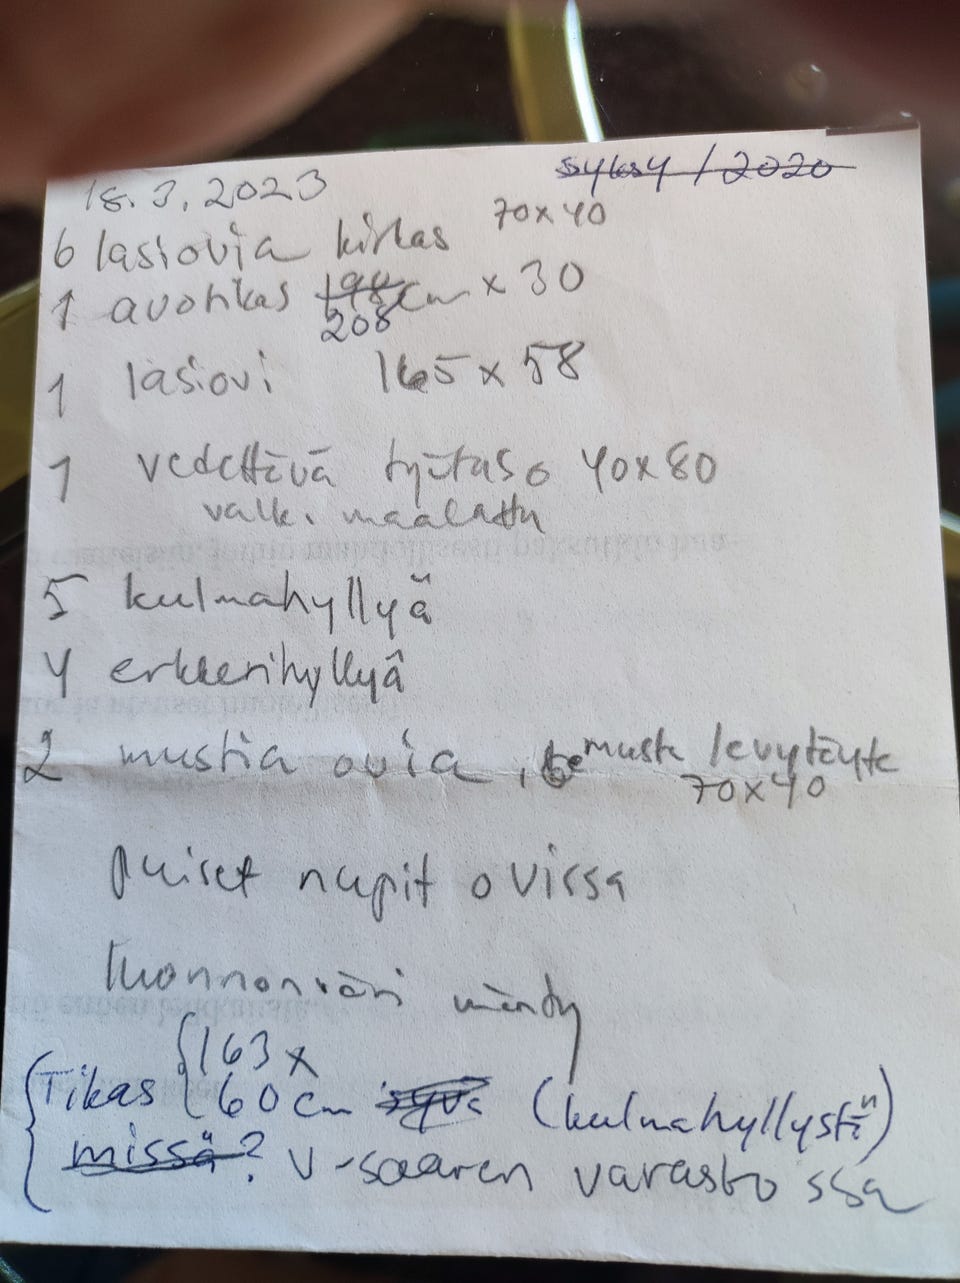 18.3.2023 syksy / 2020
6 lasiovia kirkas 70x40
1 avotikas 198 cm x 30
208
1 lasiovi 165 x 58
1 vedettävä työtaso 40x80
valk. maalattu
5 kulmahyllyä
4 erkkerihyllyä
2 mustia ovia, musta levytäyte
70x40
puiset nupit ovissa
luonnonväri mänty
163 x
Tikas 60 cm syvä (kulmahyllystön)
missä? V-saaren varastossa